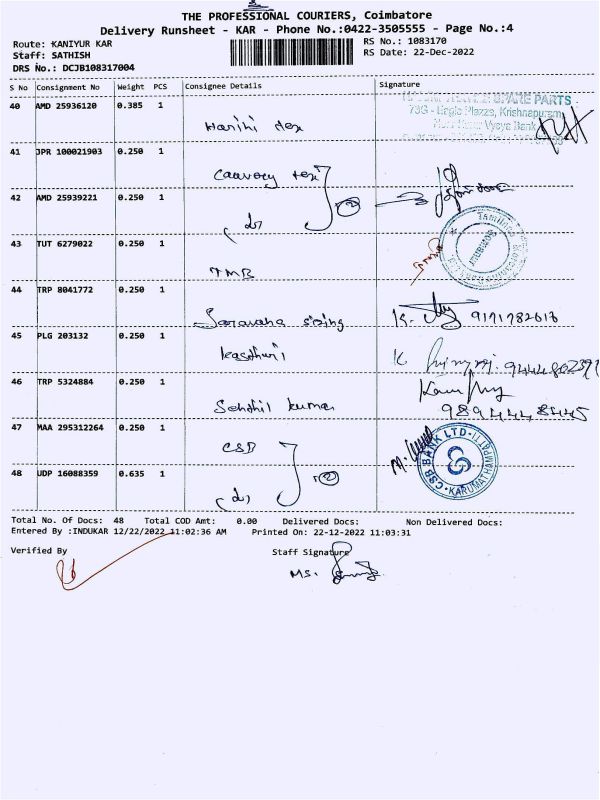 THE PROFESSIONAL COURIERS, Coimbatore
Delivery Runsheet - KAR - Phone No.:0422-3505555 - Page No.:4
Route: KANIYUR KAR
RS No.: 1083170
Staff: SATHISH
RS Date: 22-Dec-2022
DRS No.: DCJB108317004
S No Consignment No Weight PCS Consignee Details Signature
40 AMD 25936120 0.385 1
SPARE PARTS
73G - Eagle Plazza, Krishnapuram,
Vysya Bank
41 JPR 100021903 0.250 1
42 AMD 25939221 0.250 1
43 TUT 6279022 0.250 1 TMB
44 TRP 8041772 0.250 1 Saravana sizing 9171782617
45 PLG 203132 0.250 1 kasthuri
46 TRP 5324884 0.250 1 Senthil kumar
9894448445
47 MAA 295312264 0.250 1 CSB
CSB BANK LTD
KARUMATHAMPATTI
48 UDP 16088359 0.635 1
Total No. Of Docs: 48 Total COD Amt: 0.00 Delivered Docs: Non Delivered Docs:
Entered By :INDUKAR 12/22/2022 11:02:36 AM Printed On: 22-12-2022 11:03:31
Verified By Staff Signature